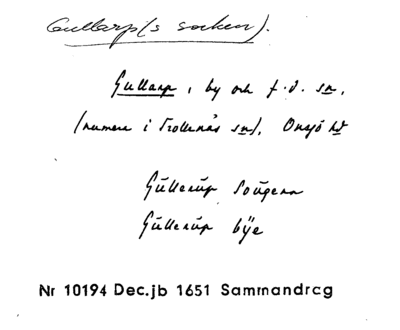 Gullarp(s socken).
Gullarp, by och f.d. sn,
(numera i Trollenäs sn), Onsjö hd
Gŭllerŭp Sougenn
Gŭllerŭp bÿe
Nr 10194 Dec.jb 1651 Sammandrag